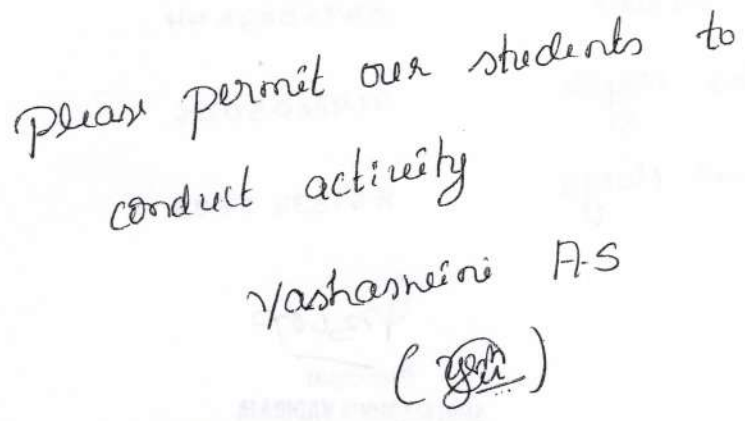 Please permit our students to
conduct activity
Yashaswini A-S